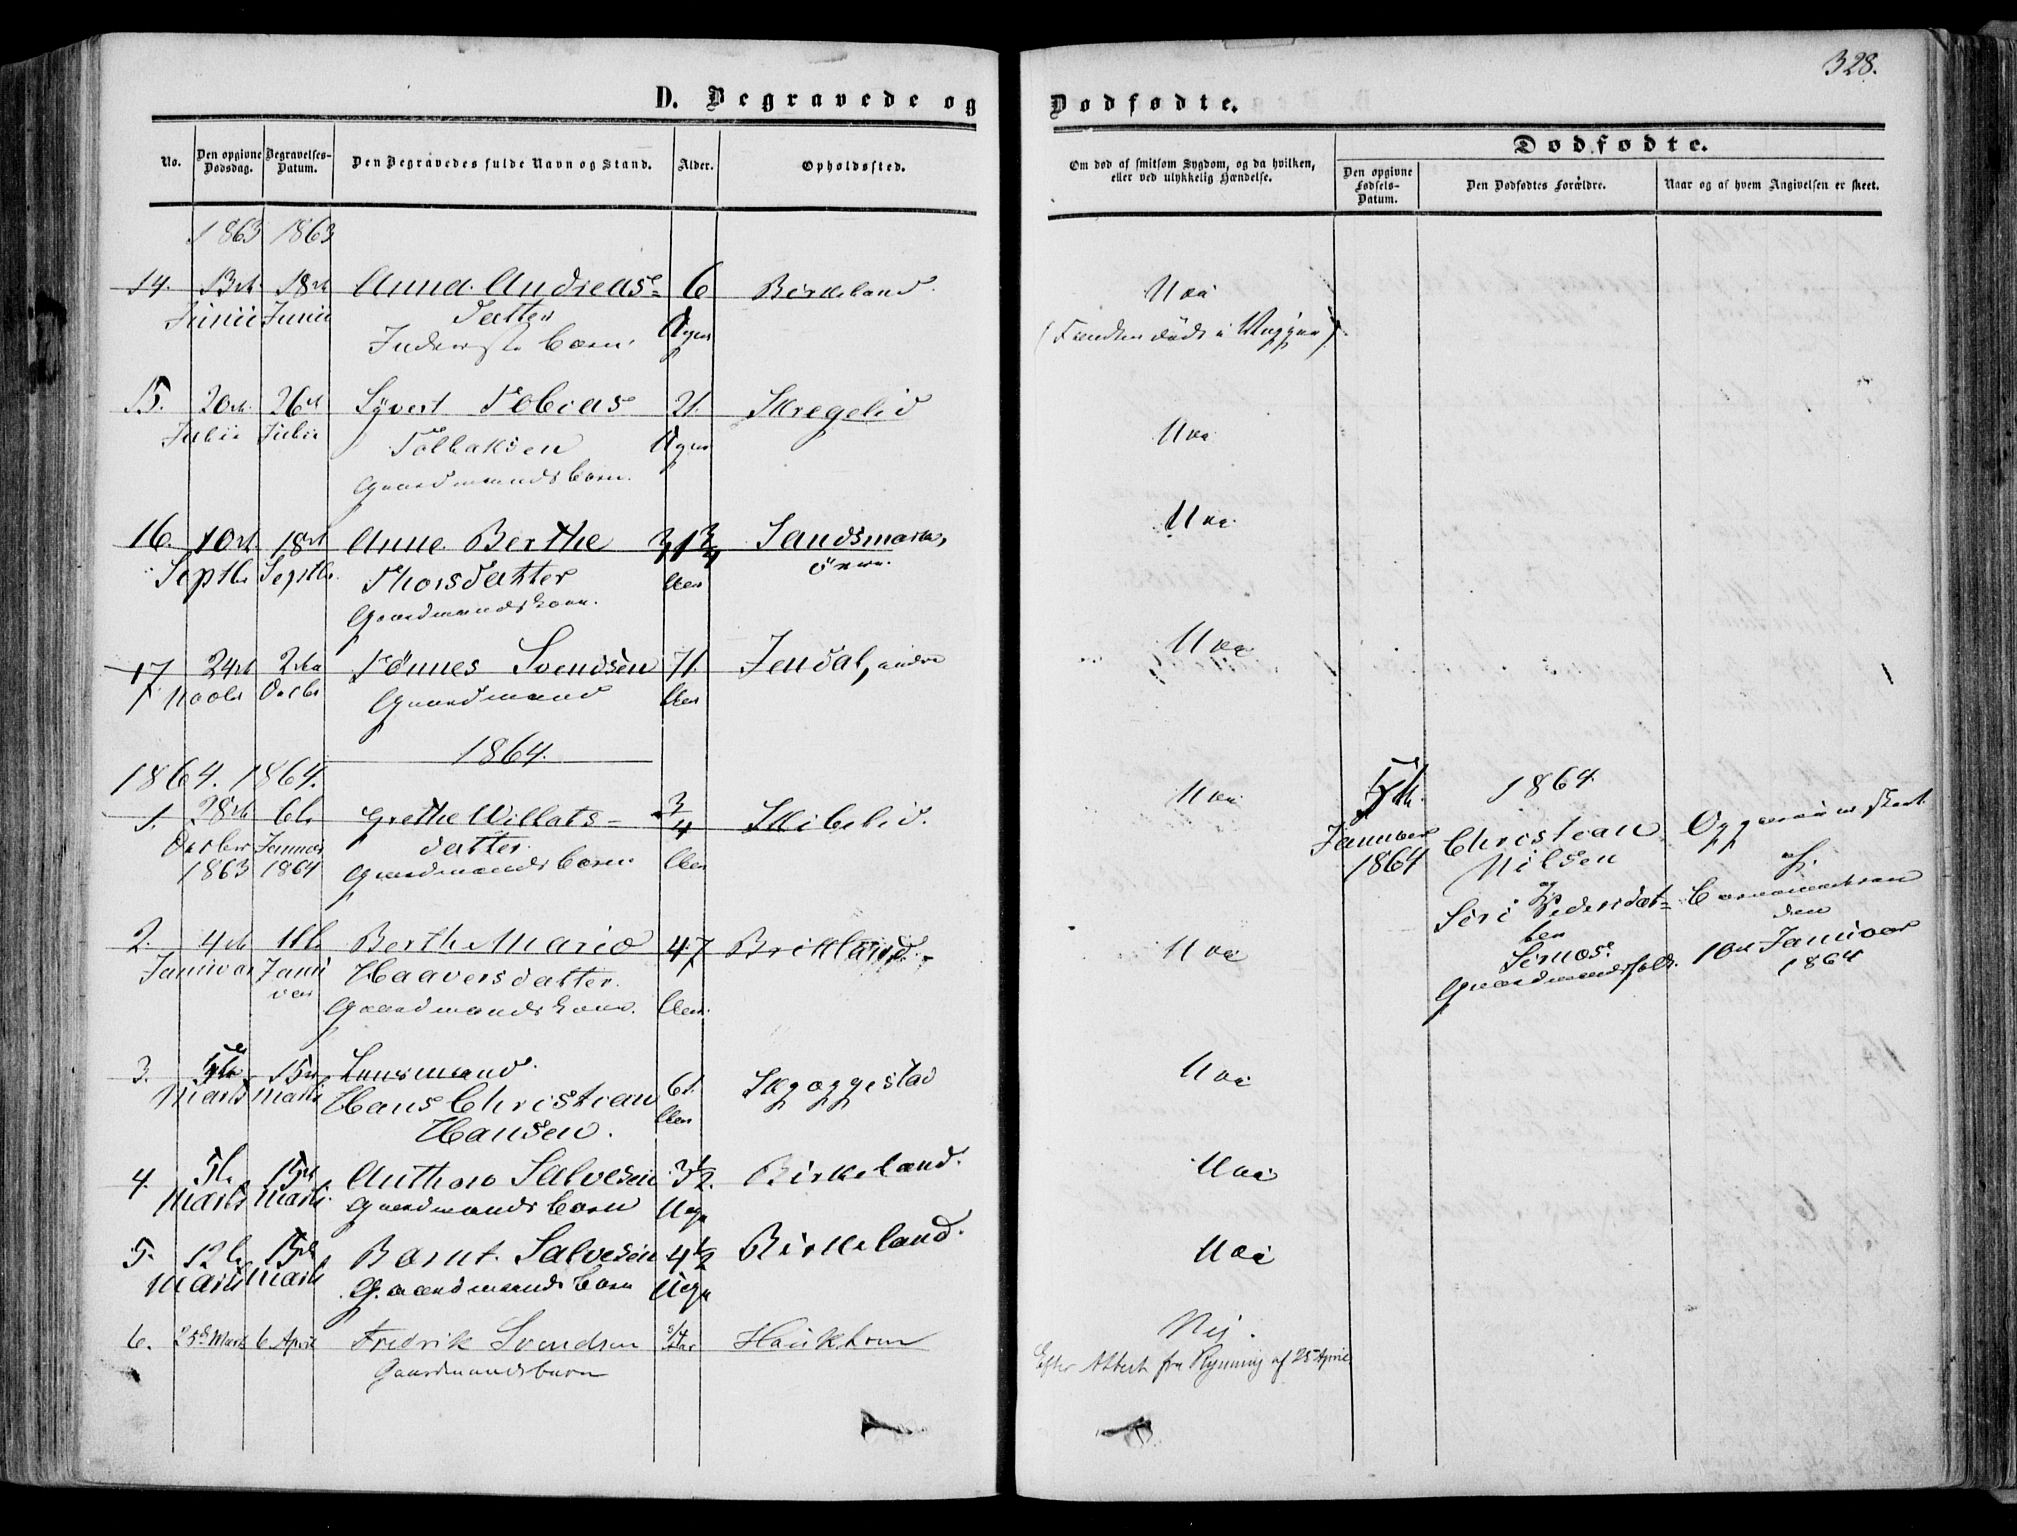 328.
D. Begravede og Dødfødte.
No.
Den opgivne Dødsdag.
Begravelses-Datum.
Den Begravedes fulde Navn og Stand.
Alder.
Opholdssted.
Om død af smitsom Sygdom, og da hvilken, eller ved ulykkelig Hændelse.
Dødfødte.
Den opgivne Fødsels-Datum.
Den Dødfødtes Forældre.
Naar og af hvem Angivelsen er skeet.
1863 1863
14. 13de 18de Anna Andreas= 6 Birkeland. Nei
Junii Junii Datter Uger
Barn.
15. 20de 26de Syvert Tobias 21 Skregelid Nei
Julii Julii Uger
Gaardmandsbarn.
16. 10de 18de Anne Berthe Sandsmark, Nei
Septbr Septbr. Thorsdatter Aar
Gaardmandskone.
17 24de 2den Tønnes Svendsen 71. Jendal, Nei
Novbr Decbr Gaardmand Aar
1864.
1864. 1864.
1. 28de 6te Grethe Willats= 3/4 Skibelid. Nei
Decber Januar datter Aar
1863 1864 Gaardmandsbarn
5te 1864
Januar Christian
1864 Nilsen
og
Siri Pedersdat=
ter
Sirnæs.
Gaardmandsfolk.
af
den
10de Januar
1864
2. 4de 11te Berthe Marie 47 Birkland. Nei
Januar Janu Haaversdatter
var Gaardmandskone. Aar.
3. 5te 15de Lensmand 61. Skoggestad Nei
Marts Marts Hans Christian Aar
Hansen.
4. 5te 15de Anthon Salvesen 3 1/2 Birkeland. Nei
Marts Marts. Gaardmandsbarn Uger
5. 12te 15de Barnt Salvesen 4 1/2 Birkeland. Nei
Marts Marts Gaardmandsbarn Uger
6. 25de Marts 6 April Fredrik Svendsen 5/4 Aar Haukhom Nej.
Gaardmandsbarn
Efter Attest fra Rynning af 25de April